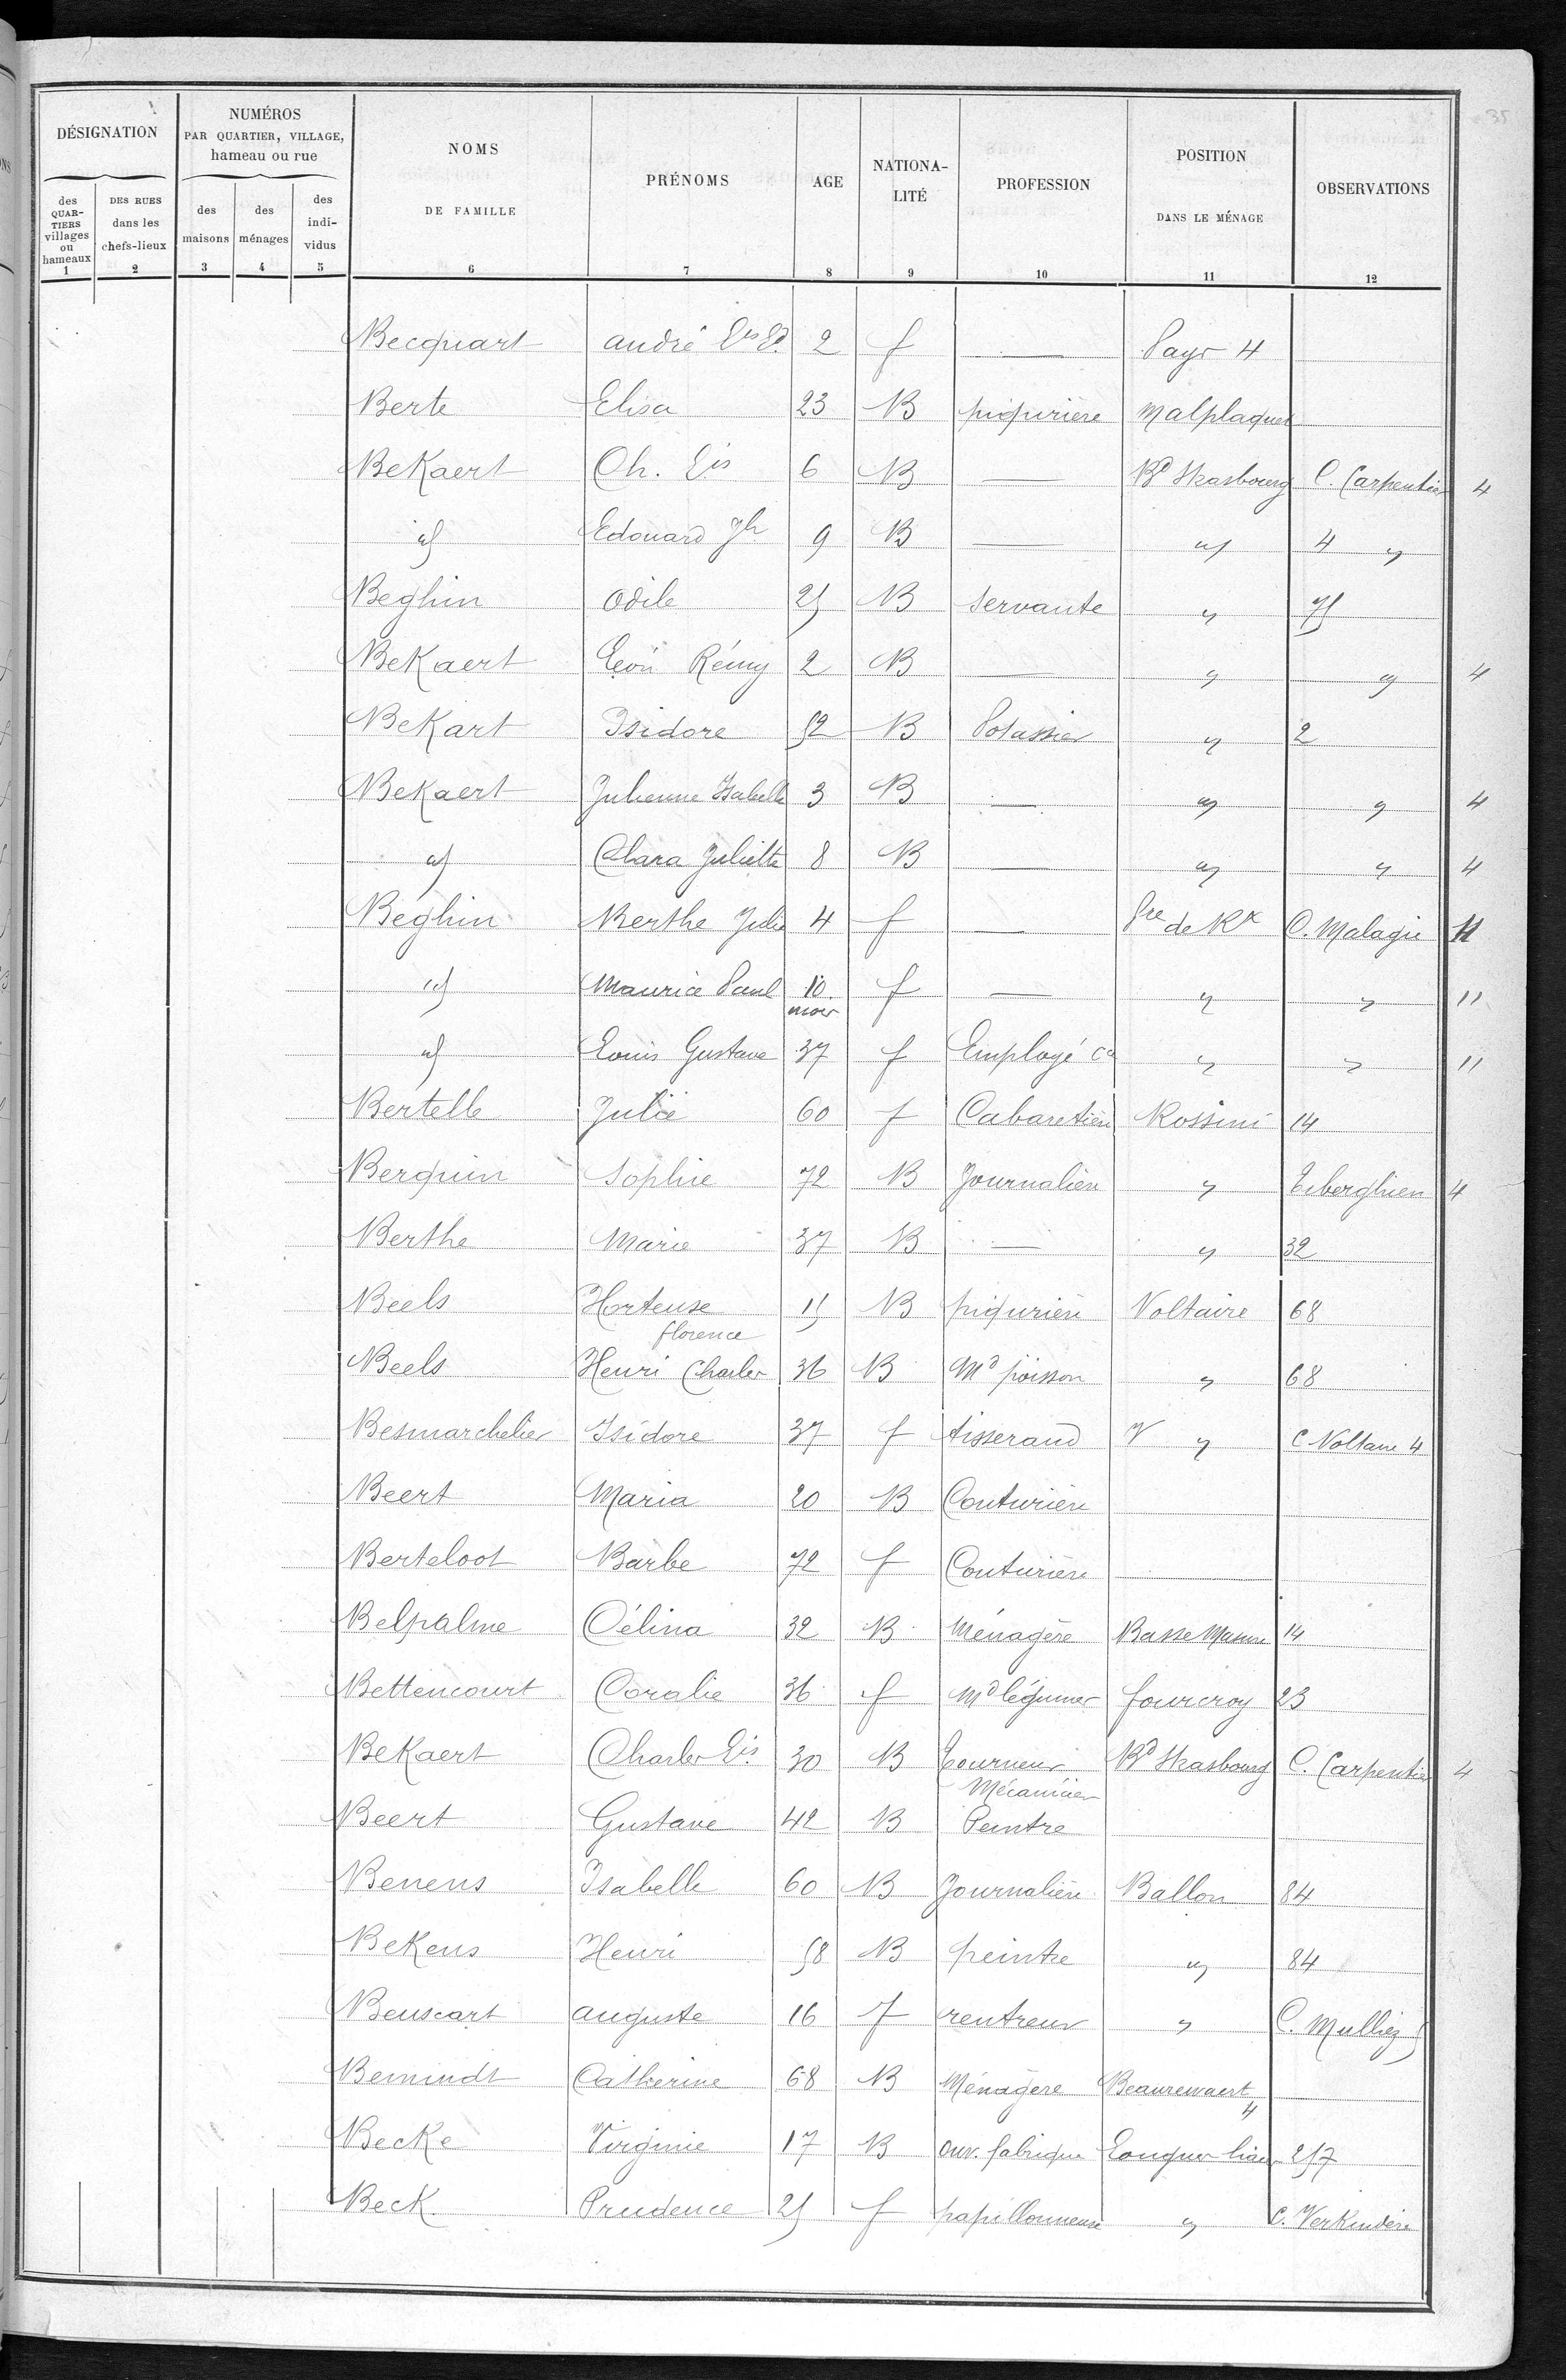 35
DÉSIGNATION
NUMÉROS
PAR QUARTIER, VILLAGE,
hameau ou rue
NOMS
DE FAMILLE
PRÉNOMS
AGE
NATIONA-
LITÉ
PROFESSION
POSITION
DANS LE MÉNAGE
OBSERVATIONS
des
QUAR-
TIERS
villages
ou
hameaux
DES RUES
dans les
chefs-lieux
des
maisons
des
ménages
des
indi-
vidus
1 2 3 4 5 6 7 8 9 10 11 12
Becquart andré 2 f — Pays 4
Berte Elisa 23 B piqurière Malplaquet
BeKaert Ch. Ls 6 B — Bd Strasbourg C. Carpentier 4
id Edouard Jh 9 B — " 4 "
Beghin Odile 25 B Servante " 75
BeKaert Léon Rémy 2 B — " " 4
BeKart Isidore 52 B Potassier " 2
BeKaert Julienne Isabelle 3 B — " " 4
id Clara Juliette 8 B — " " 4
Beghin Berthe Julie 4 f — de Rx C. Malagie 11
id Maurice Paul 10 mois f — " " 11
id Louis Gustave 37 f Employé Ce " " 11
Bertelle Julie 60 f Cabaretière Rossini 14
Berquin Sophie 72 B Journalière " Tiberghien 4
Berthe Marie 37 B — " 32
Beels Hortense 15 B piqurière Voltaire 68
florence
Beels Henri Charles 36 B Md poisson " 68
Besmarchelier Isidore 37 f tisserand V " C Voltaire 4
Beert Maria 20 B Couturière
Berteloot Barbe 72 f Couturière
Belpalme Célina 32 B Ménagère Basse Masure 14
Bettencourt Coralie 36 f Md légumes fourcroy 23
BeKaert Charles Ls 30 B Tourneur Bd Strasbourg C. Carpentier 4
Mécanicien
Beert Gustave 42 B Peintre
Benens Isabelle 60 B Journalière Ballon 84
BeKens Henri 58 B peintre " 84
Beuscart auguste 16 f rentreur " C. Mulliez 5
Bemindt Catherine 68 B Ménagère Beaurewaert
4
BecKe Virginie 17 B ouv. fabrique Longues haies 257
Beck Prudence 25 f papillonneuse " C. VerKindère